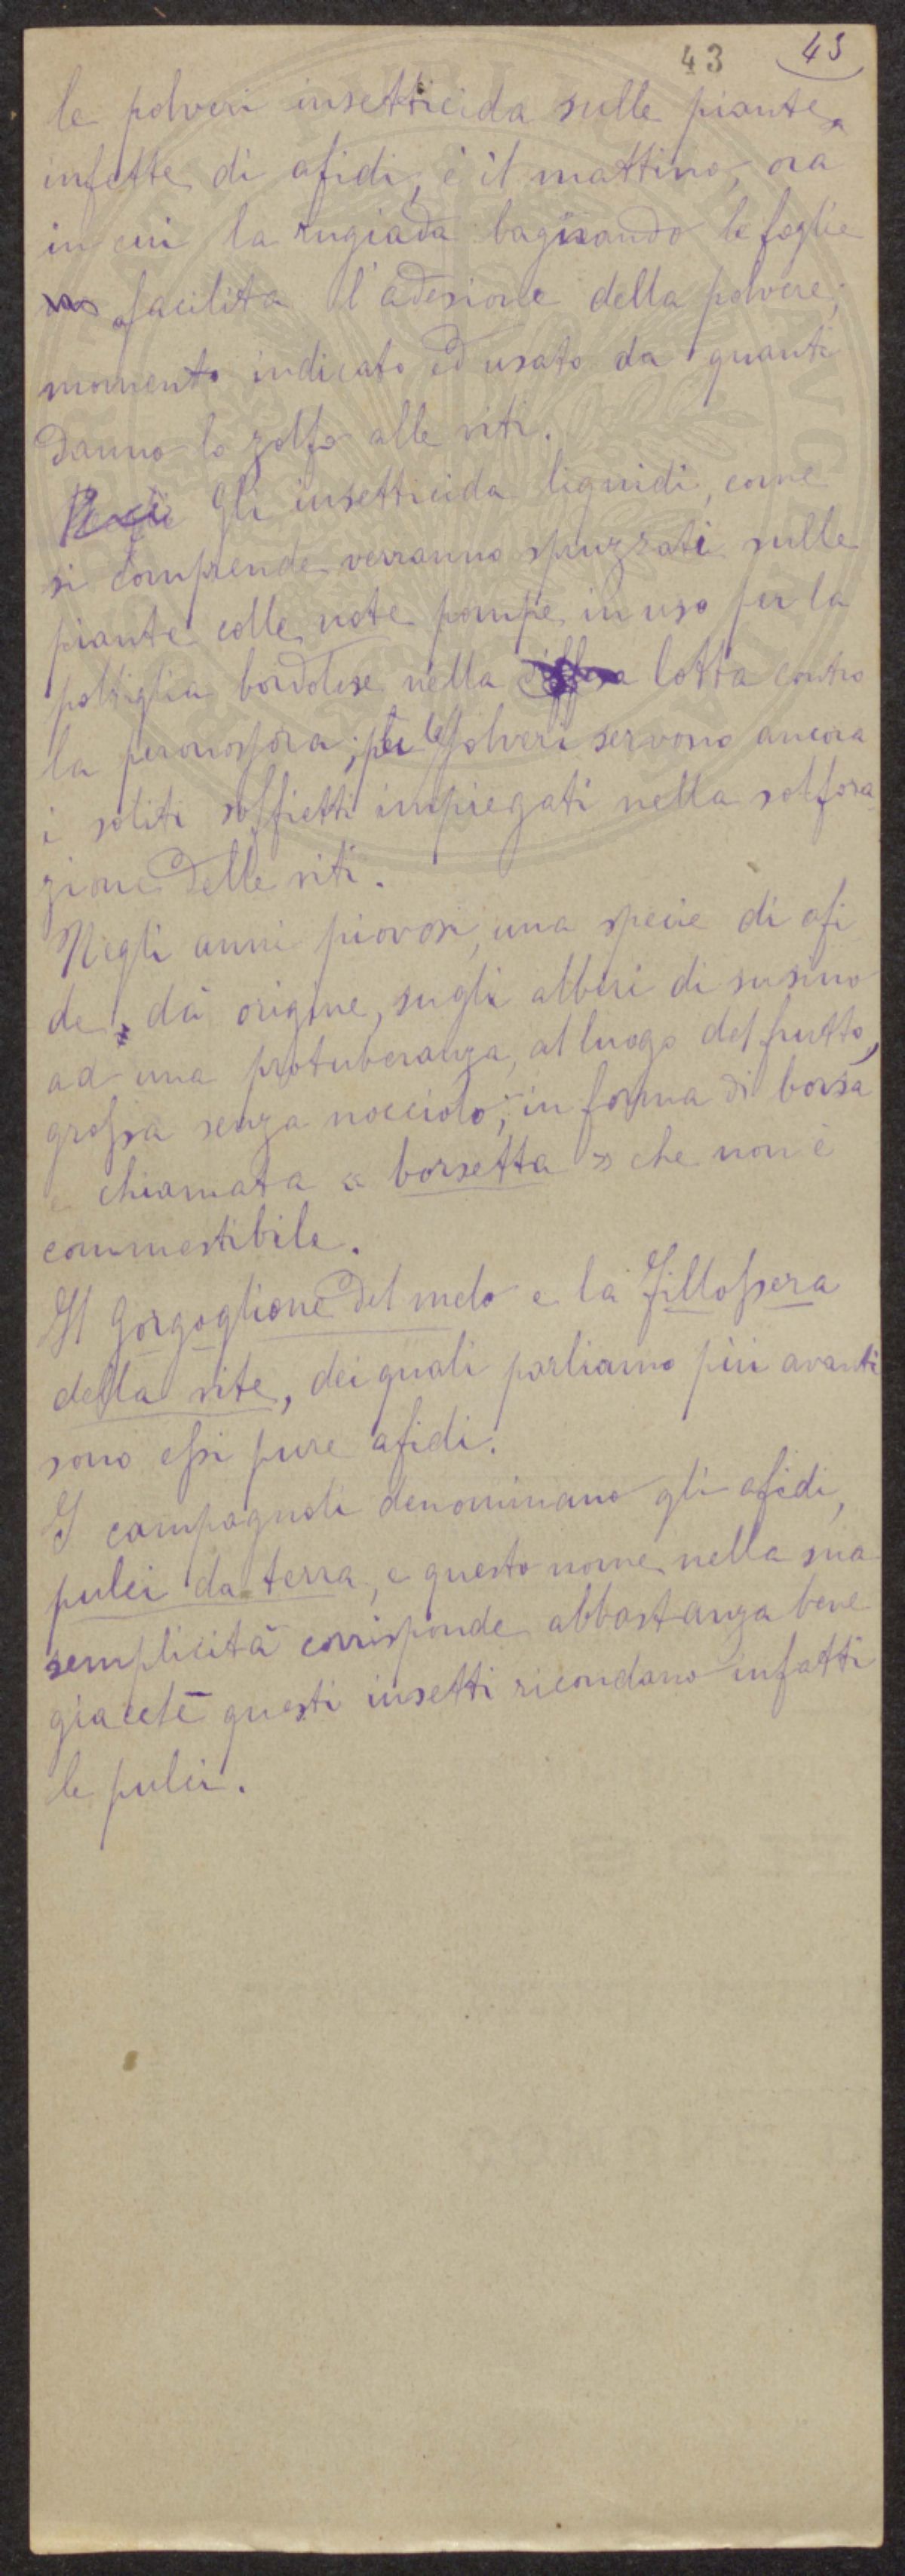 43 43
le polveri insetticida sulle piante
infette di afidi, è il mattino, ora
in cui la rugiada bagnando le foglie
facilita l'adesione della polvere;
momento indicato ed usato da quanti
danno lo zolfo alle viti.
Gli insetticida liquidi, come
si comprende verranno spruzzati sulle
piante colle note pompe in uso per la
poltiglia bordolese nella lotta contro
la peronospora; per le polveri servono ancora
i soliti soffietti impiegati nella solfora
zione delle viti.
Negli anni piovosi, una specie di afi
de, dà origine, sugli alberi di susino
ad una protuberanza, al luogo del frutto,
grossa senza nocciolo, in forma di borsa
e chiamata « borsetta » che non è
commestibile.
Il Gorgoglione del melo e la Fillossera
della vite, dei quali parliamo più avanti
sono essi pure afidi.
I campagnoli denominano gli afidi,
pulci da terra, e questo nome nella sua
semplicità corrisponde abbastanza bene
giacchè questi insetti ricordano infatti
le pulci.